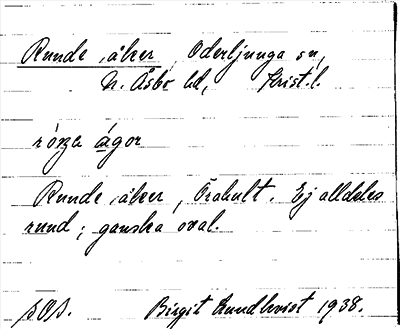 Runde åker, Oderljunga sn,
N. Åsbo hd, Krist. l.
ågor
Runde åker, Örahult. Ej alldeles
rund; ganska oval.
Birgit Lundkvist 1938.